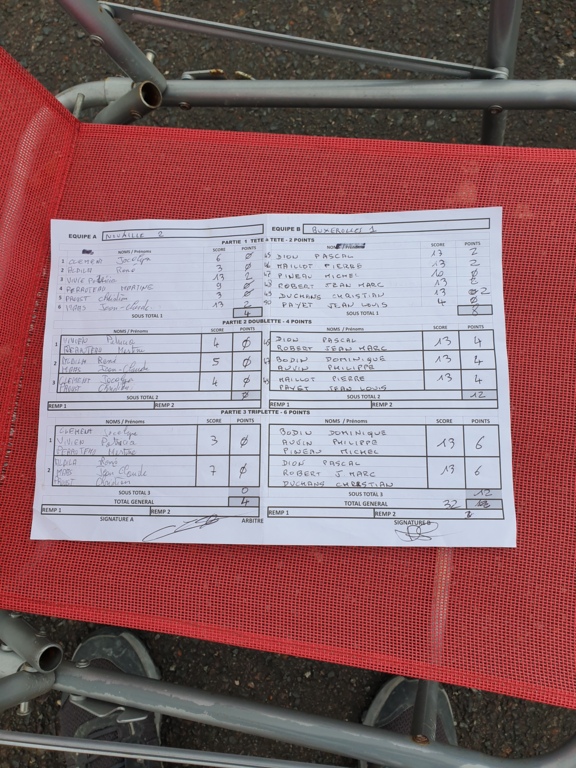 EQUIPE A NIVAILLE 2 EQUIPE B BUXEROLLES 1
PARTIE 1 TETE A TETE - 2 POINTS
NOMS / Prénoms SCORE POINTS NOMS / Prénoms SCORE POINTS
1 CLEMENT Jocelyn 6 Ø DION PASCAL 13 2
2 René 3 Ø MAILLOT PIERRE 13 2
3 VIVIER Patricia 13 2 PINEAU MICHEL 10 Ø
4 MARTINE 9 Ø ROBERT JEAN MARC 13 2
5 Christian 3 Ø DUCHANS CHRISTIAN 13 2
6 MAHS Jean-Claude 13 2 PAYET JEAN LOUIS 4 Ø
SOUS TOTAL 1 4 SOUS TOTAL 1 8
PARTIE 2 DOUBLETTE - 4 POINTS
NOMS / Prénoms SCORE POINTS NOMS / Prénoms SCORE POINTS
1 4 Ø DION PASCAL 13 4
ROBERT JEAN MARC
2 René 5 Ø BODIN DOMINIQUE 13 4
Jean-Claude AUVIN PHILIPPE
3 CLEMENT Jocelyn 4 Ø MAILLOT PIERRE 13 4
PAYET JEAN LOUIS
SOUS TOTAL 2 Ø SOUS TOTAL 2 12
REMP 1 REMP 2 REMP 1 REMP 2
PARTIE 3 TRIPLETTE - 6 POINTS
NOMS / Prénoms SCORE POINTS NOMS / Prénoms SCORE POINTS
1 CLEMENT Jocelyn 3 Ø BODIN DOMINIQUE 13 6
VIVIER Patricia AUVIN PHILIPPE
PINEAU MICHEL
2 René 7 Ø DION PASCAL 13 6
Jean Claude ROBERT J. MARC
Christian DUCHANS CHRISTIAN
SOUS TOTAL 3 0 SOUS TOTAL 3 12
TOTAL GENERAL 4 TOTAL GENERAL 32
REMP 1 REMP 2 REMP 1 REMP 2
SIGNATURE A ARBITRE SIGNATURE B